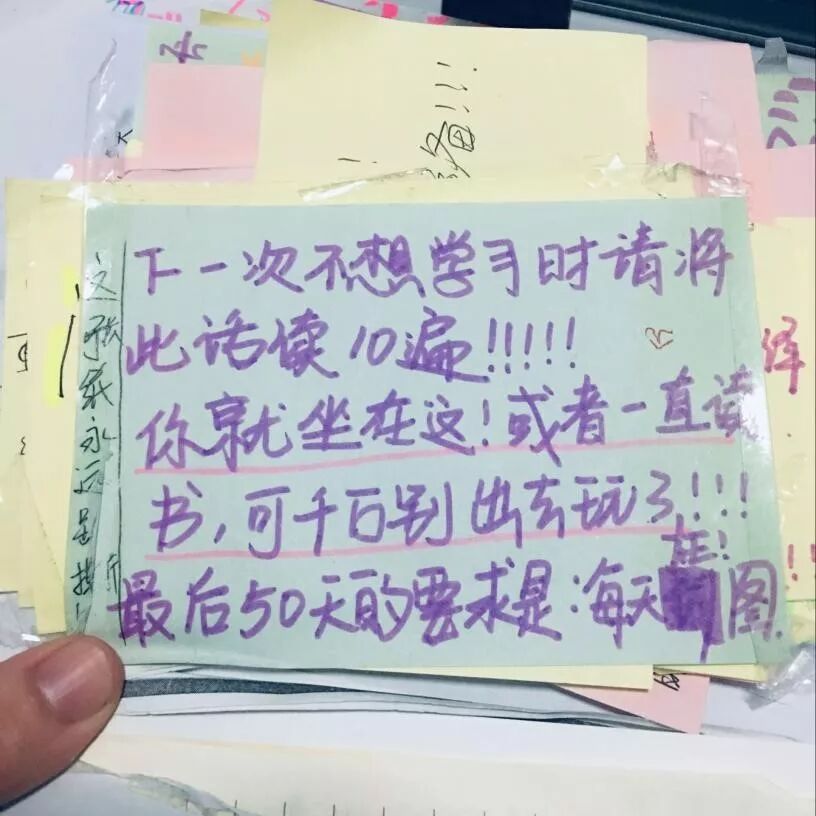 下一次不想学习时请将
此话读10遍!!!!!
你就坐在这!或者一直读
书,可千百别出去玩了!!!
最后50天的要求是:每天在!图
这张纸永远是
备!!!